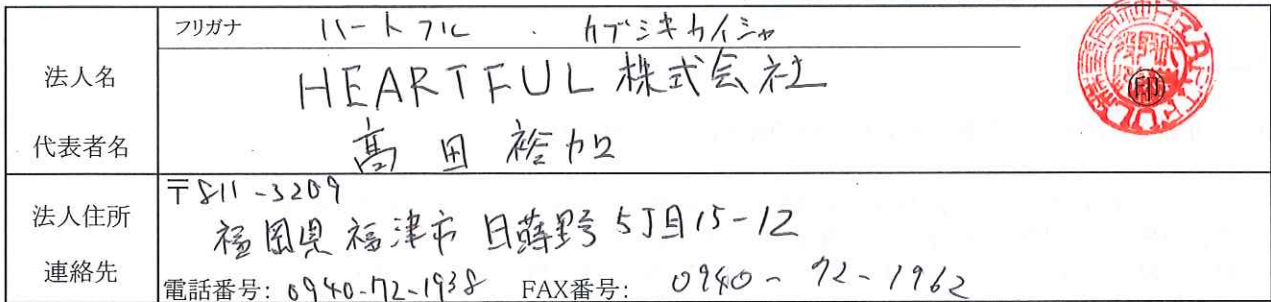 フリガナ ハートフル . カブシキカイシャ
法人名 HEARTFUL 株式会社
代表者名 高田 裕加
法人住所 〒811-3209
福岡県福津市日蒔野5丁目15-12
連絡先 電話番号: 0940-72-1938 FAX番号: 0940-72-1962
印